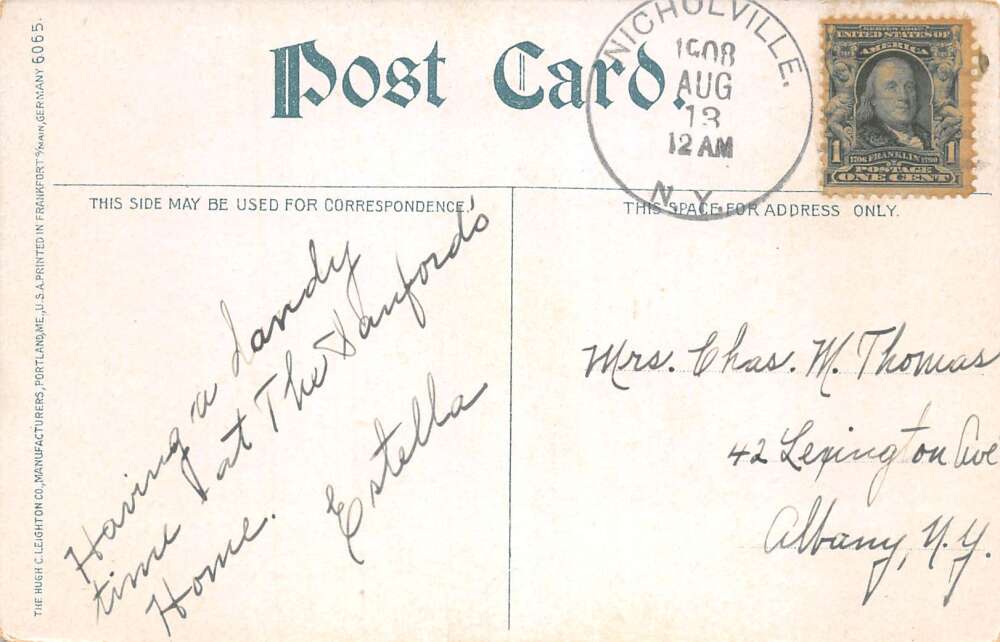 Post Card.
NICHOLVILLE.
1908
AUG
13
12 AM
N.Y.
SERIES 1902
UNITED STATES OF
AMERICA
1
1706 FRANKLIN 1790
POSTAGE
ONE CENT
THIS SIDE MAY BE USED FOR CORRESPONDENCE.
THIS SPACE FOR ADDRESS ONLY.
Having a dandy
time at The Sanford's
Home.
Estella
Mrs. Chas. M. Thomas
42 Lexington Ave
Albany, N.Y.
THE HUGH C. LEIGHTON CO., MANUFACTURERS, PORTLAND, ME., U.S.A. PRINTED IN FRANKFORT o/MAIN, GERMANY 6065.